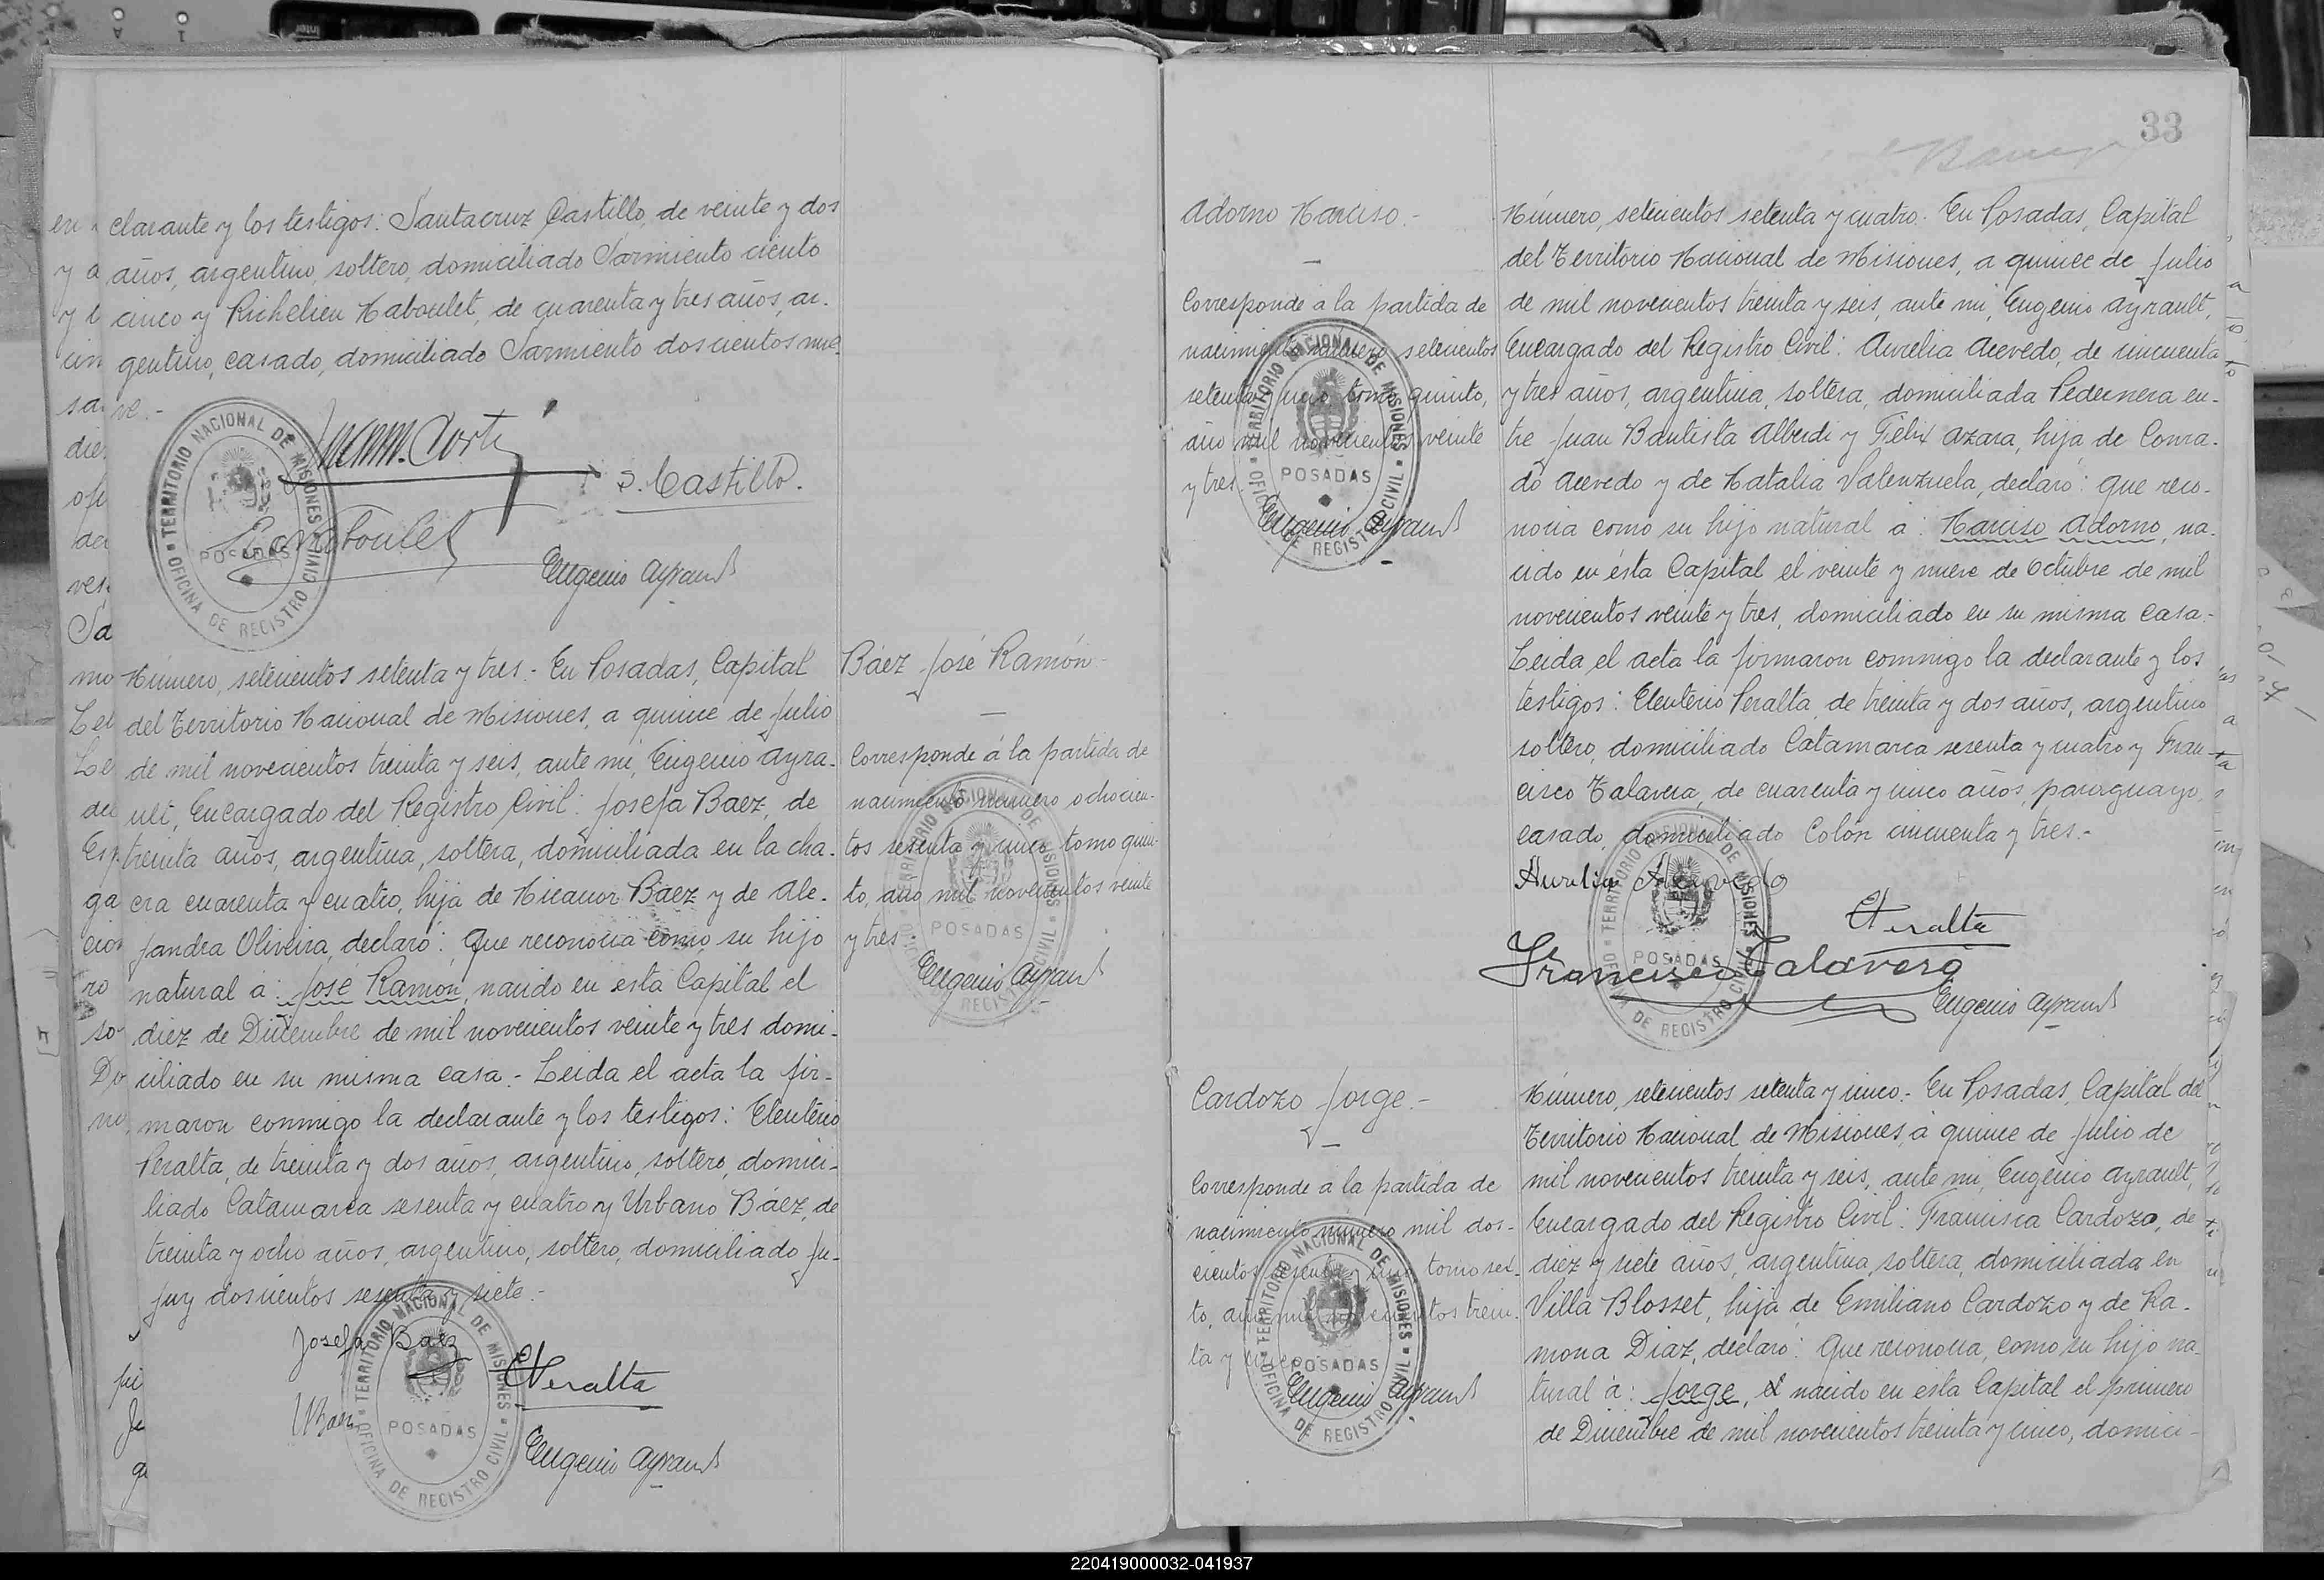 clarante y los testigos: Santacruz Castillo, de veinte y dos
años, argentino, soltero, domiciliado Sarmiento ciento
cinco y Richelieu Naboulet, de cuarenta y tres años, ar-
gentino, casado, domiciliado Sarmiento doscientos nue
ve.-
S. Castillo.
Eugenio Ayrault
TERRITORIO NACIONAL DE MISIONES
POSADAS
OFICINA DE REGISTRO CIVIL
Número, setecientos setenta y tres.- En Posadas, Capital
del Territorio Nacional de Misiones, a quince de Julio
de mil novecientos treinta y seis, ante mi, Eugenio Ayra-
ult, Encargado del Registro Civil: Josefa Baez, de
treinta años, argentina, soltera, domiciliada en la cha-
cra cuarenta y cuatro, hija de Nicanor Báez y de Ale-
jandra Oliveira, declaró: Que reconocia como su hijo
natural á: José Ramón, nacido en esta Capital el
diez de Diciembre de mil novecientos veinte y tres domi-
ciliado en su misma casa.- Leida el acta la fir-
maron conmigo la declarante y los testigos: Eleuterio
Peralta, de treinta y dos años, argentino, soltero, domici-
liado Catamarca sesenta y cuatro y Urbano Báez, de
treinta y ocho años, argentino, soltero, domiciliado Ju-
juy doscientos sesenta y siete.-
Josefa Baez
EPeralta
UBaez
Eugenio Ayrault
TERRITORIO NACIONAL DE MISIONES
POSADAS
OFICINA DE REGISTRO CIVIL
Báez José Ramón.-
Corresponde á la partida de
nacimiento número ochocien-
tos sesenta y cinco tomo quin-
to, año mil novecientos veinte
y tres
Eugenio Ayrault
POSADAS
33
Adorno Narciso.-
Corresponde a la partida de
nacimiento número setecientos
setenta y uno tomo quinto,
año mil novecientos veinte
y tres.
Eugenio Ayrault
TERRITORIO NACIONAL DE MISIONES
POSADAS
OFICINA DE REGISTRO CIVIL
Número, setecientos setenta y cuatro.- En Posadas, Capital
del Territorio Nacional de Misiones, a quince de Julio
de mil novecientos treinta y seis, ante mi, Eugenio Ayrault,
Encargado del Registro Civil: Aurelia Acevedo, de cincuenta
y tres años, argentina, soltera, domiciliada Pedernera en-
tre Juan Bautista Alberdi y Félix Azara, hija de Conra-
do Acevedo y de Natalia Valenzuela, declaró: que reco-
nocia como su hijo natural á: Narciso Adorno, na-
cido en ésta Capital el veinte y nueve de Octubre de mil
novecientos veinte y tres, domiciliado en su misma casa.-
Leida el acta la firmaron conmigo la declarante y los
testigos: Eleuterio Peralta, de treinta y dos años, argentino
soltero, domiciliado Catamarca sesenta y cuatro y Fran-
cisco Talavera, de cuarenta y cinco años, paraguayo,
casado, domiciliado Colón cincuenta y tres.-
Aurelia Acevedo
EPeralta
Francisco Talavera
Eugenio Ayrault
TERRITORIO NACIONAL DE MISIONES
POSADAS
OFICINA DE REGISTRO CIVIL
Cardozo Jorge.-
Corresponde a la partida de
nacimiento número mil dos-
cientos sesenta y uno tomo sex-
to, año mil novecientos trein-
ta y cinco
Eugenio Ayrault
TERRITORIO NACIONAL DE MISIONES
POSADAS
OFICINA DE REGISTRO CIVIL
Número, setecientos setenta y cinco.- En Posadas, Capital del
Territorio Nacional de Misiones, a quince de Julio de
mil novecientos treinta y seis, ante mi, Eugenio Ayrault,
Encargado del Registro Civil: Francisca Cardozo, de
diez y siete años, argentina, soltera, domiciliada en
Villa Blosset, hija de Emiliano Cardozo y de Ra-
mona Diaz, declaró: Que reconocia, como su hijo na-
tural á: Jorge, nacido en esta Capital el primero
de Diciembre de mil novecientos treinta y cinco, domici-
220419000032-041937